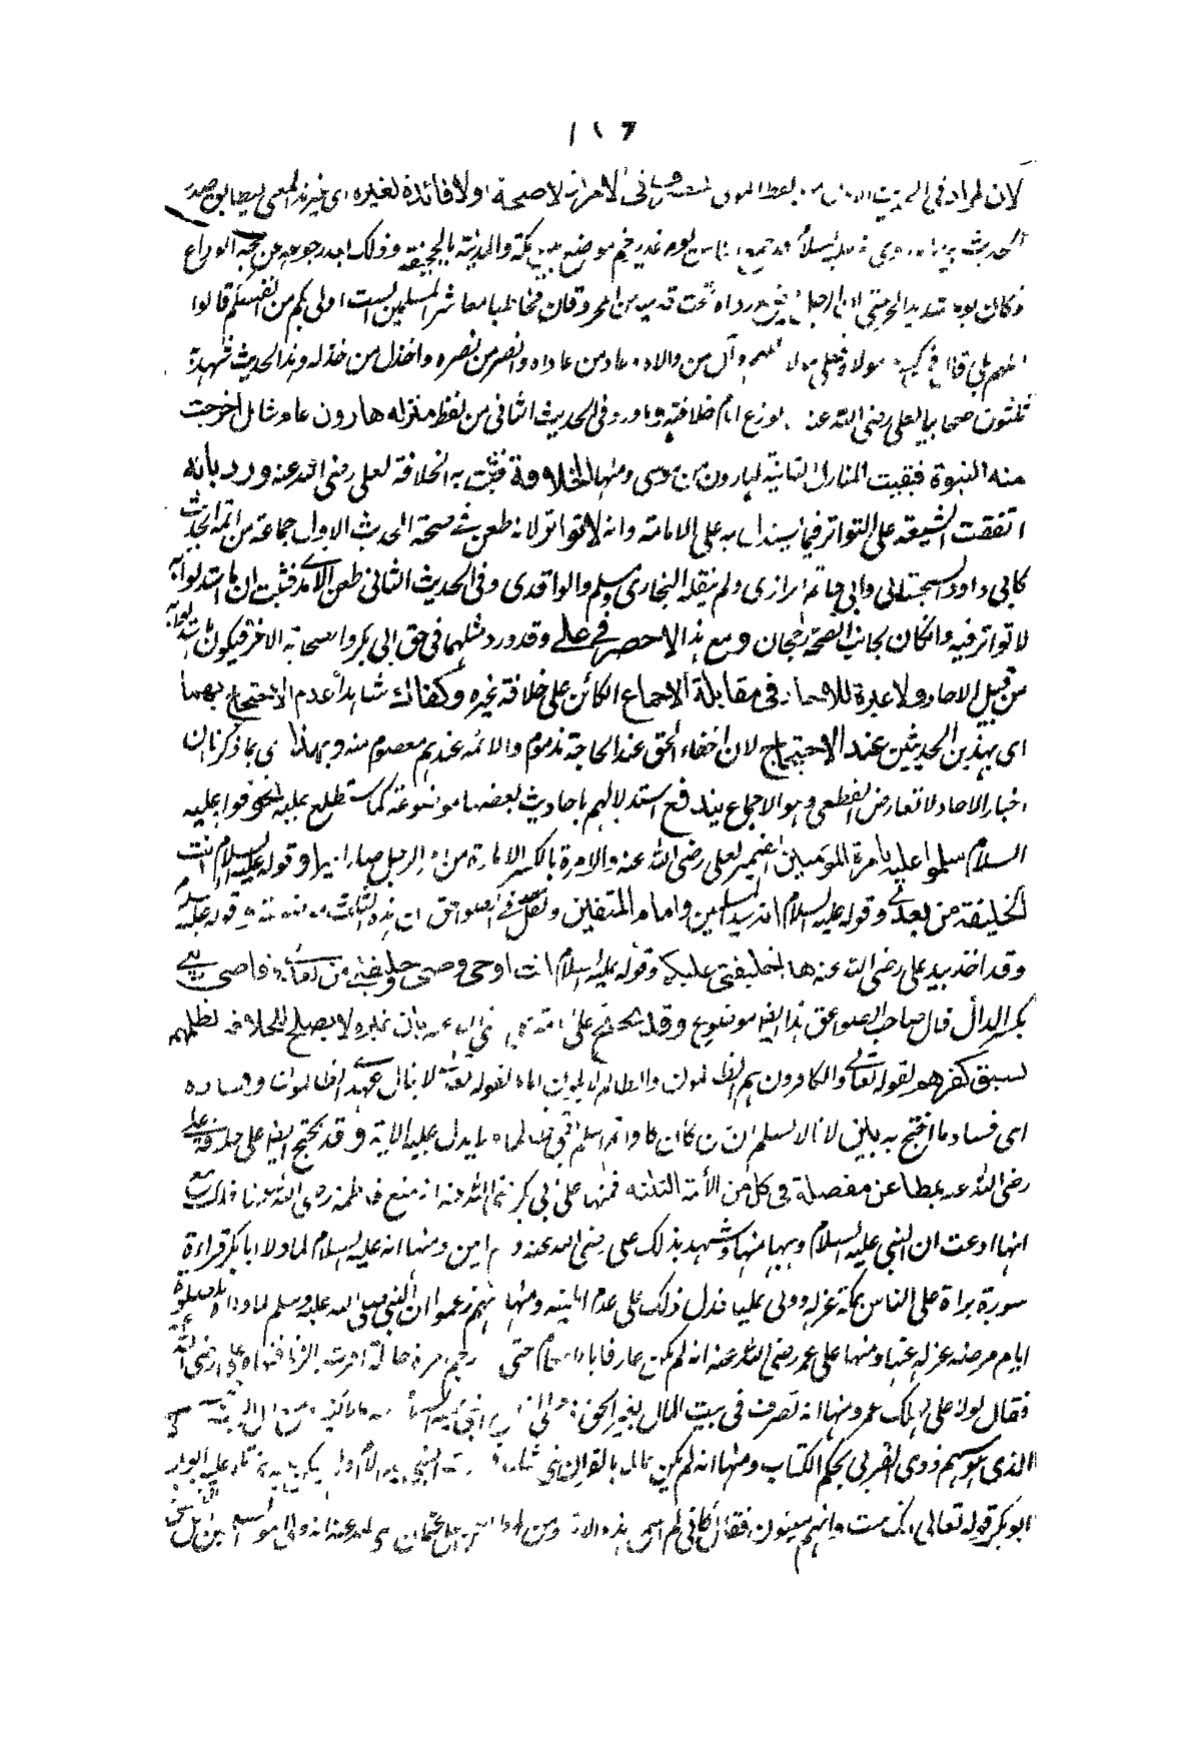 ١١٦
لان المراد في الحديث من لفظ المولى المتصرف في الامر اذ لا صحة ولا فائدة لغيره اى غير هذا المعنى ليطابق صدر
الحديث روى عليه السلام جمع الناس يوم غدير خم موضع بين مكة والمدينة بالجحفة وذلك بعد رجوعه عن حجة الوداع
وكان يوم شديد الحر حتى ان الرجل يضع رداءه تحت قدميه من الحر وقال مخاطبا معاشر المسلمين الست اولى بكم من انفسكم قالوا
اللهم بلى قال من كنت مولاه فعلى مولاه اللهم وال من والاه وعاد من عاداه وانصر من نصره واخذل من خذله وهذا الحديث شهده
ثلثون صحابيا لعلى رضى الله عنه لما نوزع ايام خلافته وما ورد فى الحديث الثانى من لفظ منزلة هارون عام شامل اخرجت
منه النبوة فبقيت المنازل الثانية لهارون من موسى ومنها الخلافة فثبت به الخلافة لعلى رضى الله عنه ورد بانه
اتفقت الشيعة على التواتر فيما يستدل به على الامامة وانه لا تواتر لانه طعن فى صحة الحديث الاول جماعة من ائمة الحديث
كابى داود السجستانى وابى حاتم الرازى ولم ينقله البخارى ومسلم والواقدى وفى الحديث الثانى طعن الآمدى فثبت ان ما استدلوا به
لا تواتر فيه وان كان لجانب الصحة رجحان ومع هذا لا حصر فى على وقد ورد مثلهما فى حق ابى بكر واصحابه الاخر فيكون ما استدلوا به
من قبيل الاحاد ولا عبرة للاحاد فى مقابلة الاجماع الكائن على خلافة غيره وكفاك شاهدا عدم الاحتجاج بهما
اى بهذين الحديثين عند الاحتجاج لان اخفاء الحق عند الحاجة مذموم والائمة عندهم معصوم منه وبهذا اى بما ذكر ان
اخبار الاحاد لا تعارض القطعى وهو الاجماع يندفع استدلالهم باحاديث بعضها موضوعة كما ستطلع عليه نحو قوله عليه
السلام سلموا عليه بامرة المؤمنين الضمير لعلى رضى الله عنه والامرة بالكسر الامارة من امر الرجل صار اميرا وقوله عليه السلام انت
الخليفة من بعدى وقوله عليه السلام انه سيد المسلمين وامام المتقين ونقل فى الصواعق ان هذه الثلث موضوعة وقوله عليه السلام
وقد اخذ بيد على رضى الله عنه هذا خليفتى عليكم وقوله عليه السلام انت اخى ووصى وخليفتى من بعدى وقاضى دينى
بكسر الدال قال صاحب الصواعق هذا ايضا موضوع وقد يحتج على امامة على رضى الله عنه بان غيره لا يصلح للخلافة لظلمهم
لسبق كفرهم لقوله تعالى والكافرون هم الظالمون والظالم لا يكون اماما لقوله تعالى لا ينال عهدى الظالمين وفساده
اى فساد ما احتج به بين لانا لا نسلم ان من كان كافرا ثم اسلم ظالم ما يدل عليه الآية وقد يحتج ايضا على خلافة على
رضى الله عنه بمطاعن مفصلة فى كل من الأئمة الثلثة فمنها على ابى بكر رضى الله عنه انه منع فاطمة رضى الله عنها فدك مع
انها ادعت ان النبى عليه السلام وهبها منها وشهد بذلك على رضى الله عنه وام ايمن ومنها انه عليه السلام لما ولا ابا بكر قراءة
سورة براة على الناس بمكة عزله وولى عليا فدل ذلك على عدم اهليته ومنها انهم زعموا ان النبى صلى الله عليه وسلم لما ولاه الصلوة
ايام مرضه عزله عنها ومنها على عمر رضى الله عنه انه لم يكن عارفا بالاحكام حتى رجم مرة حاملة اقرت بالزنا فنهاه على رضى الله عنه
فقال لولا على لهلك عمر ومنها انه تصرف فى بيت المال بغير الحق
الذى هو سهم ذوى القربى بحكم الكتاب ومنها انه لم يكن عالما بالقرآن
ابو بكر قوله تعالى انك ميت وانهم ميتون فقال كانى لم اسمع هذه الآية ومن على عثمان رضى الله عنه انه ولى امور المسلمين